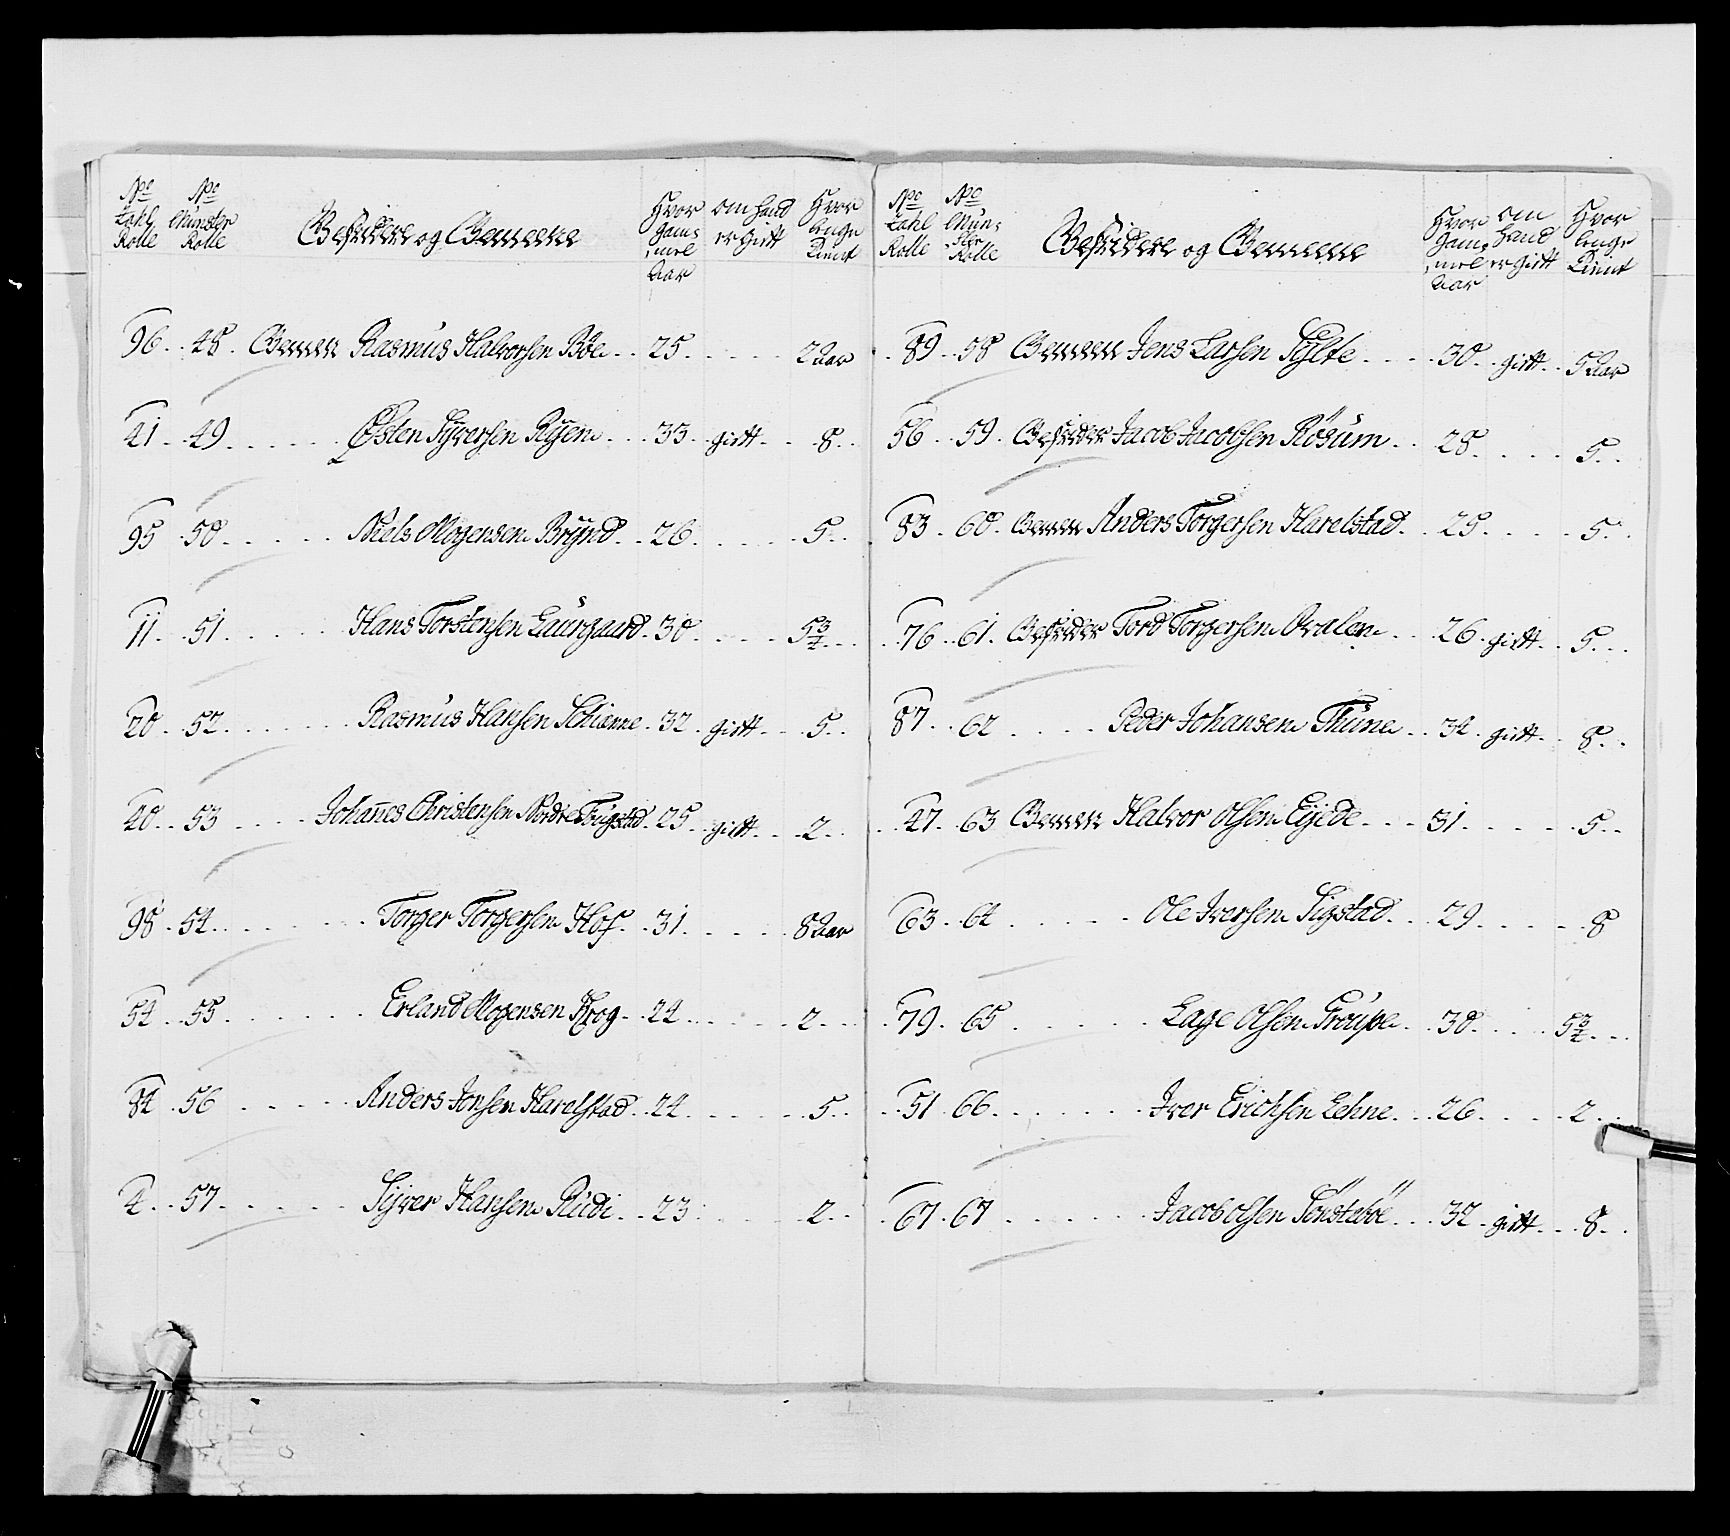 No Tahl Rolle No Münster Rolle Gefreidere og Gemeene Hvor Gam: mel Aar om hand er gift Hvor lenge Tient
96. 48. Gemeen Rasmus Halvorsen Böe 25. 2 Aar
41. 49. Østen Syversen Ryen 33 gift 8
95 50 Niels Mogensen Brÿnd 26 5
11 51 Hans Torstensen Laurgaard 30 5 3/4
20 52 Rasmus Hansen Schienne 32 gift 5
40 53 Johannes Christensen Nordre 25 gift 2
98 54 Torger Torgersen Hof 31 8 Aar
54 55 Erland Mogensen Krog 24 2
84 56 Anders Jonsen Harelstad 24 5
4 57 Syver Hansen Rudi 23 2
No Tahl Rolle No Mün: ster Rolle Gefreidere og Gemeene Hvor Gam: mel Aar om hand er gift Hvor lenge Tient
89 58 Gemeen Jens Larsen Sylte 30 gift 5 Aar
56 59 Gefreider Jacob Jacobsen Rösum 28 5
83 60 Gemeen Anders Torgersen Harelstad 25 5
76 61 Gefreider Tord Torgersen 26 gift 5
87 62 Peder Johansen Thune 32 gift 8
47 63 Gemeen Halvor Olsen Eyede 31 5
63 64 Ole Iversen Sigstad 29 8
79 65 Lage Olsen 30 5 3/4
51 66 Iver Erichsen Lehne 26 2
67 67 Jacob Olsen Sönsteböe 32 gift 8